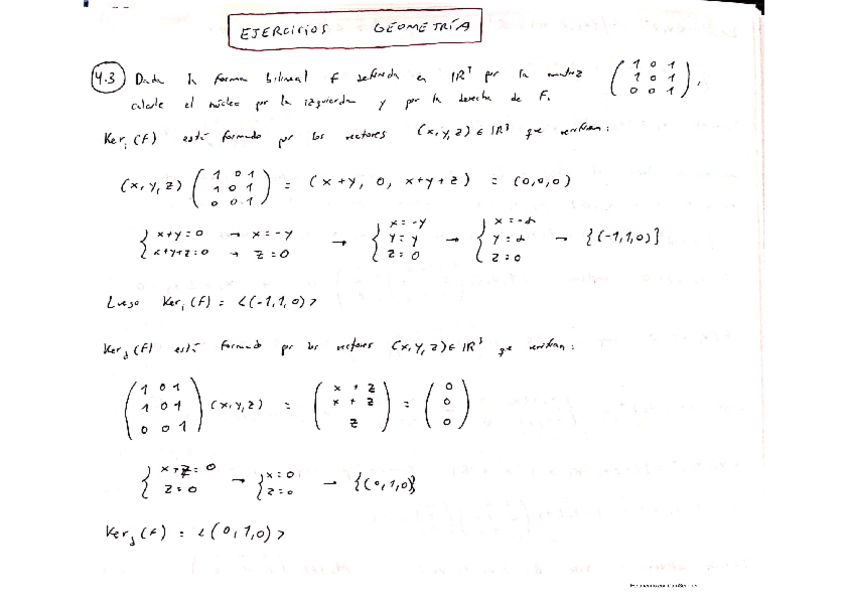 EJERCICIOS GEOMETRÍA
4.3 Dada la forma bilineal F definida en IR³ por la matriz ( 1 0 1 / 1 0 1 / 0 0 1 ),
calcule el núcleo por la izquierda y por la derecha de F.
Ker_i (F) está formado por los vectores (x,y,z) ∈ IR³ que verifican:
(x,y,z) ( 1 0 1 / 1 0 1 / 0 0 1 ) = (x+y, 0, x+y+z) = (0,0,0)
{ x+y=0 → x=-y / x+y+z=0 → z=0 → { x=-y / y=y / z=0 → { x=-α / y=α / z=0 → {(-1,1,0)}
Luego Ker_i (F) = <(-1,1,0)>
Ker_d (F) está formado por los vectores (x,y,z) ∈ IR³ que verifican:
( 1 0 1 / 1 0 1 / 0 0 1 ) (x,y,z) = ( x+z / x+z / z ) = ( 0 / 0 / 0 )
{ x+z=0 / z=0 → { x=0 / z=0 → {(0,1,0)}
Ker_d (F) = <(0,1,0)>